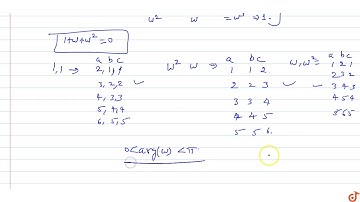 ω² ω =ω³ → 1.
1+ω+ω²=0
a b c
1,1 → 2,1,1
3,2,2
4,3,3
5,4,4
6,5,5
ω² ω ⇒
a b c
1 1 2
2 2 3
3 3 4
4 4 5
5 5 6
ω, ω² =
a b c
1 2 1
2 3 2
3 4 3
4 5 4
5 6 5
0<arg(ω)<π